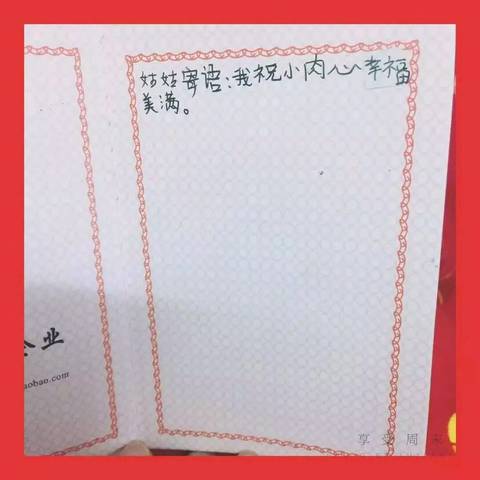 姑姑寄语:我祝小肉心幸福
美满。
企业
aobao.com
享受周末